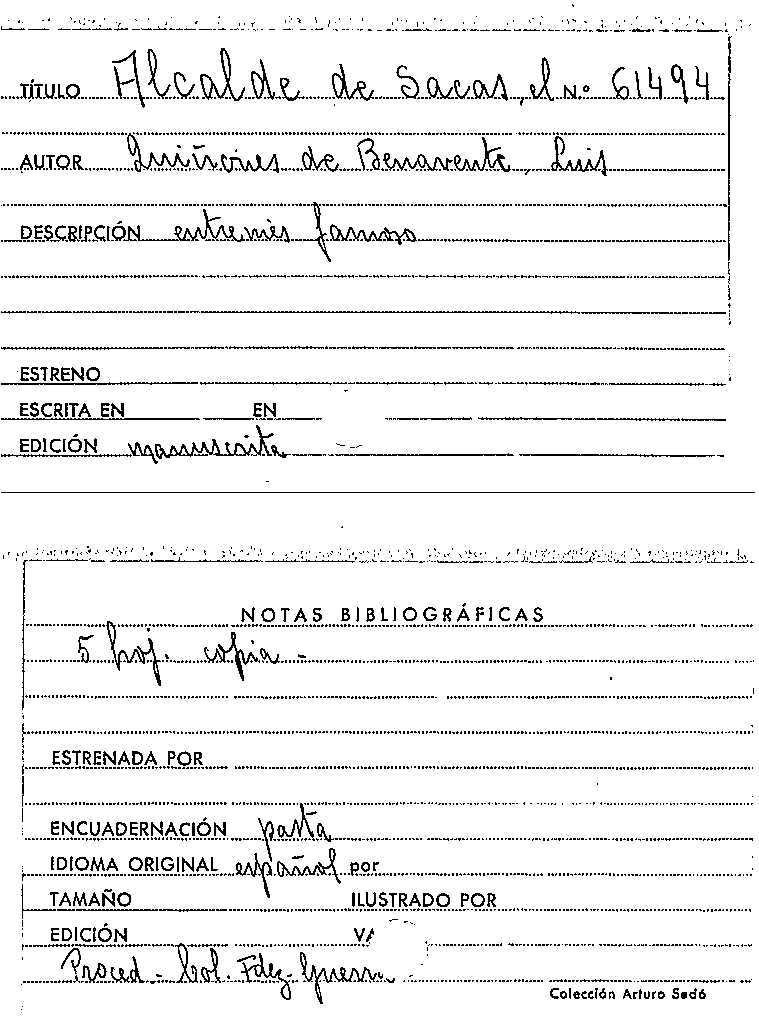 TÍTULO Alcalde de Sacas, el N.º 61494
AUTOR Quiñones de Benavente, Luis
DESCRIPCIÓN entremés famoso
ESTRENO
ESCRITA EN EN
EDICIÓN manuscrita
NOTAS BIBLIOGRÁFICAS
5 hoj. copia -
ESTRENADA POR
ENCUADERNACIÓN pasta
IDIOMA ORIGINAL español por
TAMAÑO ILUSTRADO POR
EDICIÓN
Proced - Col. Fdez-Guerra
Colección Arturo Sedó